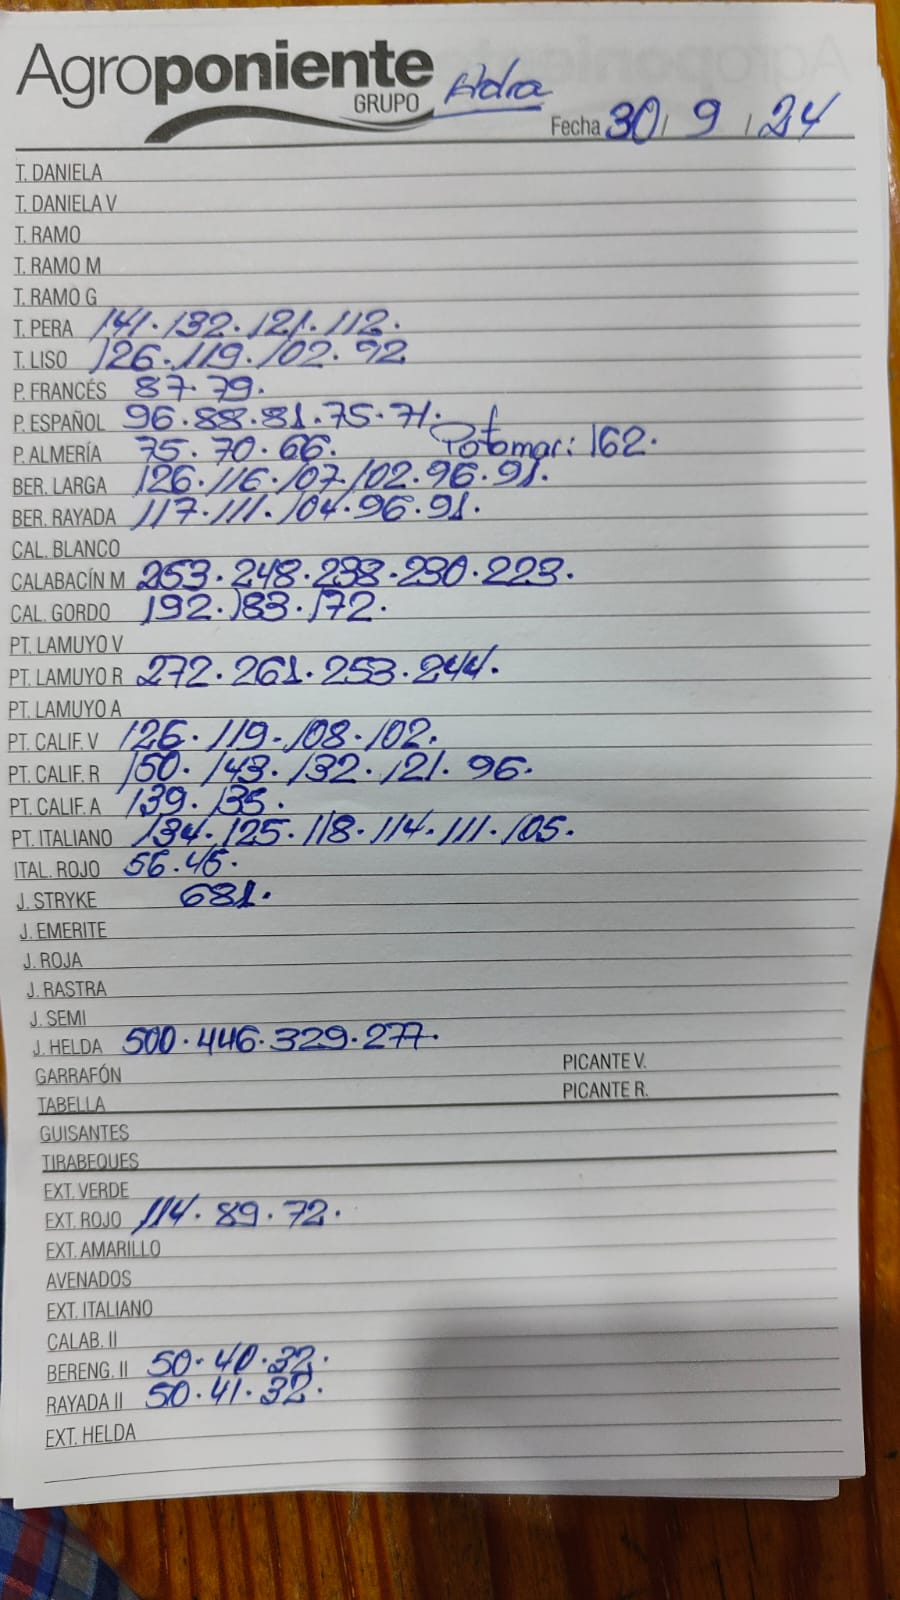 Agroponiente
GRUPO Adra
Fecha 30/ 9 / 24
T. DANIELA
T. DANIELA V
T. RAMO
T. RAMO M
T. RAMO G
T. PERA 141. 132. 121. 112.
T. LISO 126. 119. 102. 92
P. FRANCÉS 87. 79.
P. ESPAÑOL 96. 88. 81. 75. 71.
P. ALMERÍA 75. 70. 66. Potomar: 162.
BER. LARGA 126. 116. 107. 102. 96. 91.
BER. RAYADA 117. 111. 104. 96. 91.
CAL. BLANCO
CALABACÍN M 253. 248. 238. 230. 223.
CAL. GORDO 192. 183. 172.
PT. LAMUYO V
PT. LAMUYO R 272. 261. 253. 244.
PT. LAMUYO A
PT. CALIF. V 126. 119. 108. 102.
PT. CALIF. R 150. 143. 132. 121. 96.
PT. CALIF. A 139. 135.
PT. ITALIANO 134. 125. 118. 114. 111. 105.
ITAL. ROJO 56. 45.
J. STRYKE 681.
J. EMERITE
J. ROJA
J. RASTRA
J. SEMI
J. HELDA 500. 446. 329. 277.
GARRAFÓN PICANTE V.
TABELLA PICANTE R.
GUISANTES
TIRABEQUES
EXT. VERDE
EXT. ROJO 114. 89. 72.
EXT. AMARILLO
AVENADOS
EXT. ITALIANO
CALAB. II
BERENG. II 50. 40. 32.
RAYADA II 50. 41. 32.
EXT. HELDA